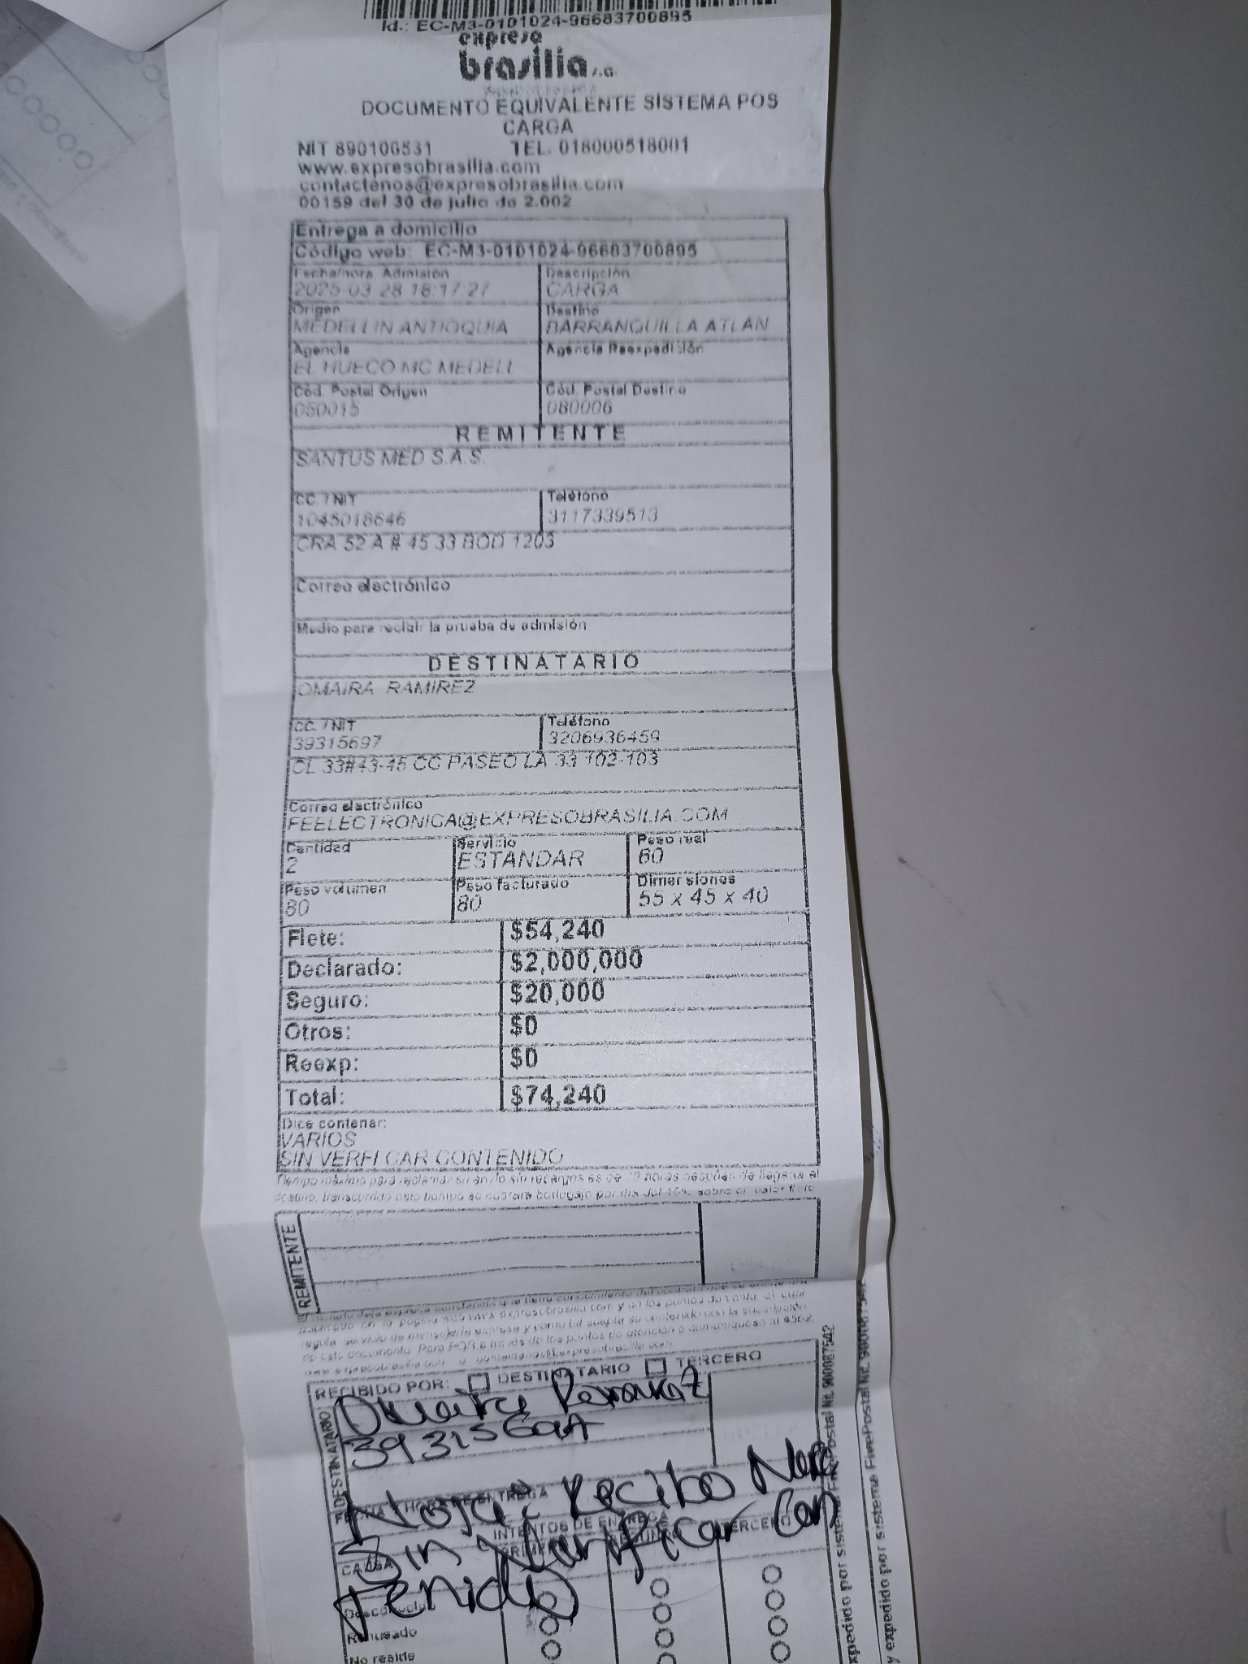 Id.: EC-M3-0101024-96683700895
expreso
brasilia s.a.
DOCUMENTO EQUIVALENTE SISTEMA POS
CARGA
NIT 890100531 TEL. 018000518001
www.expresobrasilia.com
contactenos@expresobrasilia.com
00159 del 30 de julio de 2.002
Entrega a domicilio
Código web: EC-M3-0101024-96683700895
Fecha/hora Admisión Descripción
2025-03-28 18:17:27 CARGA
Origen Destino
MEDELLIN ANTIOQUIA BARRANQUILLA ATLAN
Agencia Agencia Reexpedición
EL HUECO MC MEDELL
Cód. Postal Origen Cód. Postal Destino
050015 080006
REMITENTE
SANTUS MED S.A.S.
CC. / NIT Teléfono
1045018646 3117339513
CRA 52 A # 45 33 BOD 1203
Correo electrónico
Medio para recibir la prueba de admisión
DESTINATARIO
OMAIRA RAMIREZ
CC. / NIT Teléfono
39315697 3206936459
CL 33#43-45 CC PASEO LA 33 102-103
Correo electrónico
FEELECTRONICA@EXPRESOBRASILIA.COM
Cantidad Servicio Peso real
2 ESTANDAR 60
Peso volumen Peso facturado Dimensiones
80 80 55 x 45 x 40
Flete: $54,240
Declarado: $2,000,000
Seguro: $20,000
Otros: $0
Reexp: $0
Total: $74,240
Dice contener:
VARIOS
SIN VERFI CAR CONTENIDO
REMITENTE
RECIBIDO POR: DESTINATARIO TERCERO
DESTINATARIO
Nota: Recibo
Sin
CAUSA
INTENTOS DE ENTREGA
TERCERO
Desconocido
Rehusado
No reside
expedido por sistema FirePostal Nit. 900087542
y expedido por sistema FirePostal Nit.